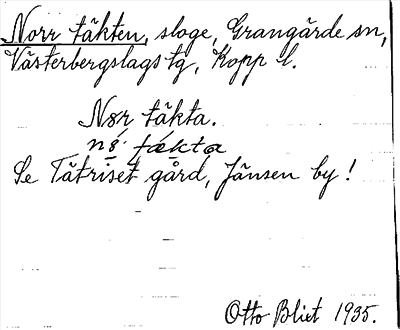 Norr täkten, sloge, Grangärde sn,
Västerbergslags tg, Kopp l.
Nør täkta.
nǿ tækta
Se Tätriset gård, Jänsen by!
Otto Blixt 1935.